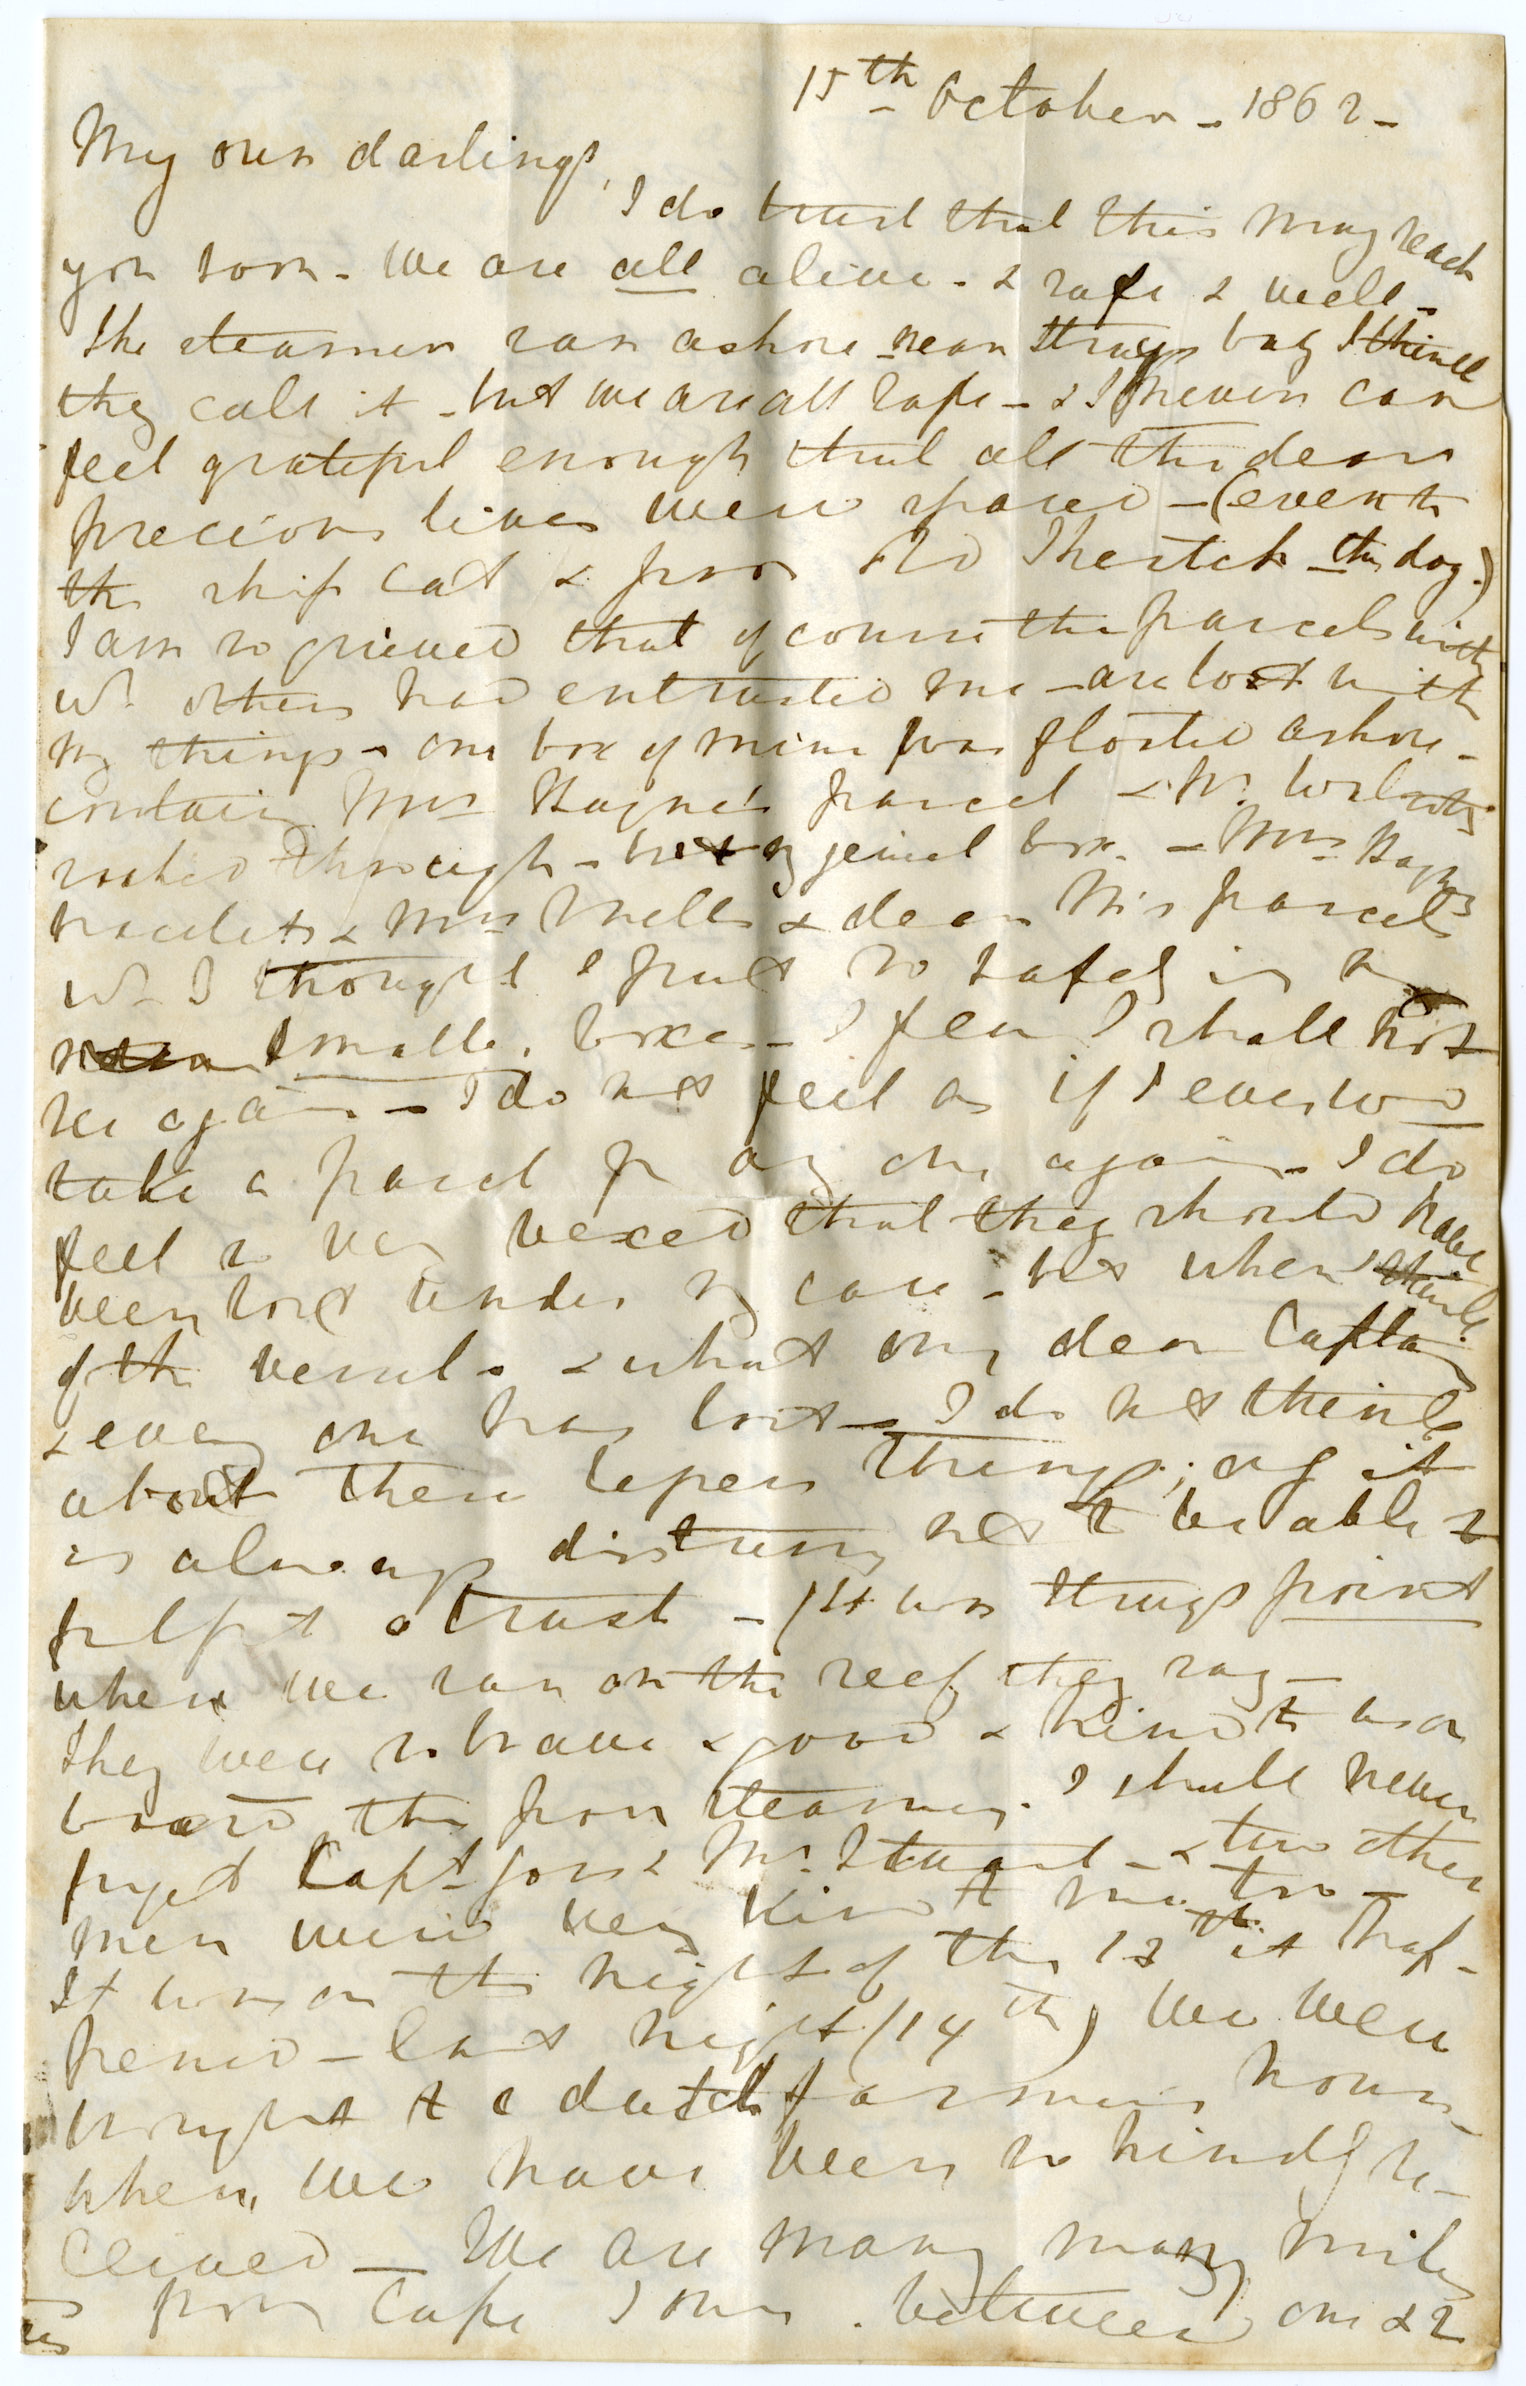 15th October - 1862 -
My own darlings,
I do trust that this may reach
you soon - We are all alive - & safe & well -
The steamer ran ashore near Struys bay I think
they call it - but we are all safe - & I never can
feel grateful enough that all the dear
precious lives were spared - (even to
the ship cat & poor old the dog.)
I am so grieved that of course the parcels with
wh others had entrusted me - are lost with
my things - one box of mine was floated ashore -
contain Mrs Hayne's parcel & Mr.
soaked through - but my jewel box - Mrs Hayne's
bracelets & Mrs & dear parcels
wh I thought I put so safely in my
smaller boxes - I fear I shall not
see again - I do not feel as if I ever wd
take a parcel for any one again - I do
feel so very vexed that they should have
been lost under my care - but when I think
of the vessel - & what our dear Captain
& every one has lost - I do not think
about these lesser things; only it
is always distressing not to be able to
fulfil a trust - (It was Struys point
where we ran on the reef they say -
They were so brave & good & kind to us on
board the poor steamer. I shall never
forget Capt & Mr. Stuart - & two other
men were very kind to me too -
It was on the night of the 13th it hap-
pened - last night (14th) we were
brought to a dutch farmers house -
where we have been so kindly re-
ceived - We are many many miles
from Cape Town. between one & 2